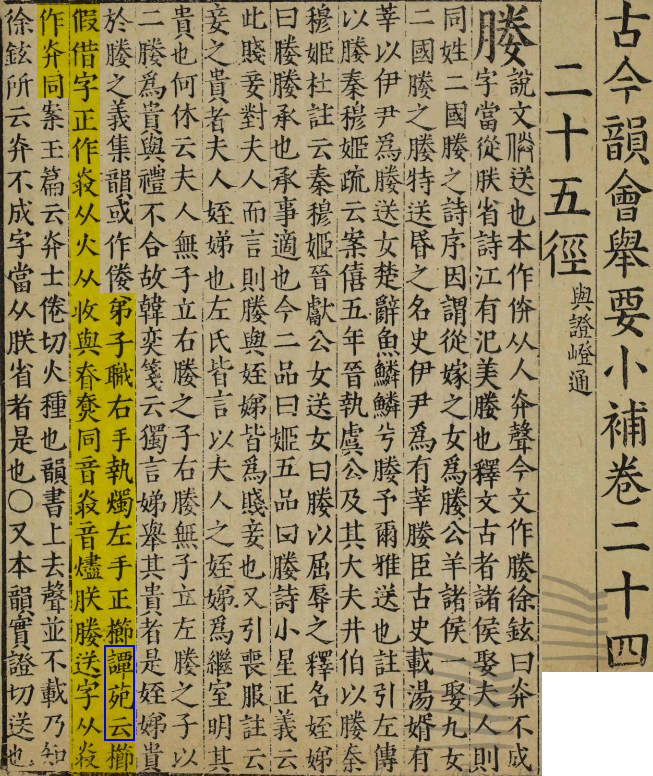 古今韻會舉要小補卷二十四
二十五徑與證嶝通
媵說文㑞送也本作㑞从人灷聲今文作媵徐鉉曰灷不成
字當從朕省詩江有汜美媵也釋文古者諸侯娶夫人則
同姓二國媵之詩序因謂從嫁之女爲媵公羊諸侯一娶九女
二國媵之媵特送昏之名史伊尹爲有莘媵臣古史載湯婿有
莘以伊尹爲媵送女楚辭魚鱗鱗兮媵予爾雅送也註引左傳
以媵秦穆姬疏云案僖五年晉執虞公及其大夫井伯以媵秦
穆姬杜註云秦穆姬晉獻公女送女曰媵以屈辱之釋名姪娣
曰媵媵承也承事適也今二品曰姬五品曰媵詩小星正義云
此賤妾對夫人而言則媵與姪娣皆爲賤妾也又引喪服註云
妾之貴者夫人姪娣也左氏皆言以夫人之姪娣爲繼室明其
貴也何休云夫人無子立右媵之子右媵無子立左媵之子以
二媵爲貴與禮不合故韓奕箋云獨言娣舉其貴者是姪娣貴
於媵之義集韻或作倰弟子職右手執燭左手正櫛譚苑云櫛
假借字正作㷼从火从收與眷𤎩同音㷼音燼朕媵送字从㷼
作灷同案玉篇云灷士倦切火種也韻書上去聲並不載乃知
徐鉉所云灷不成字當从朕省者是也○又本韻實證切送也